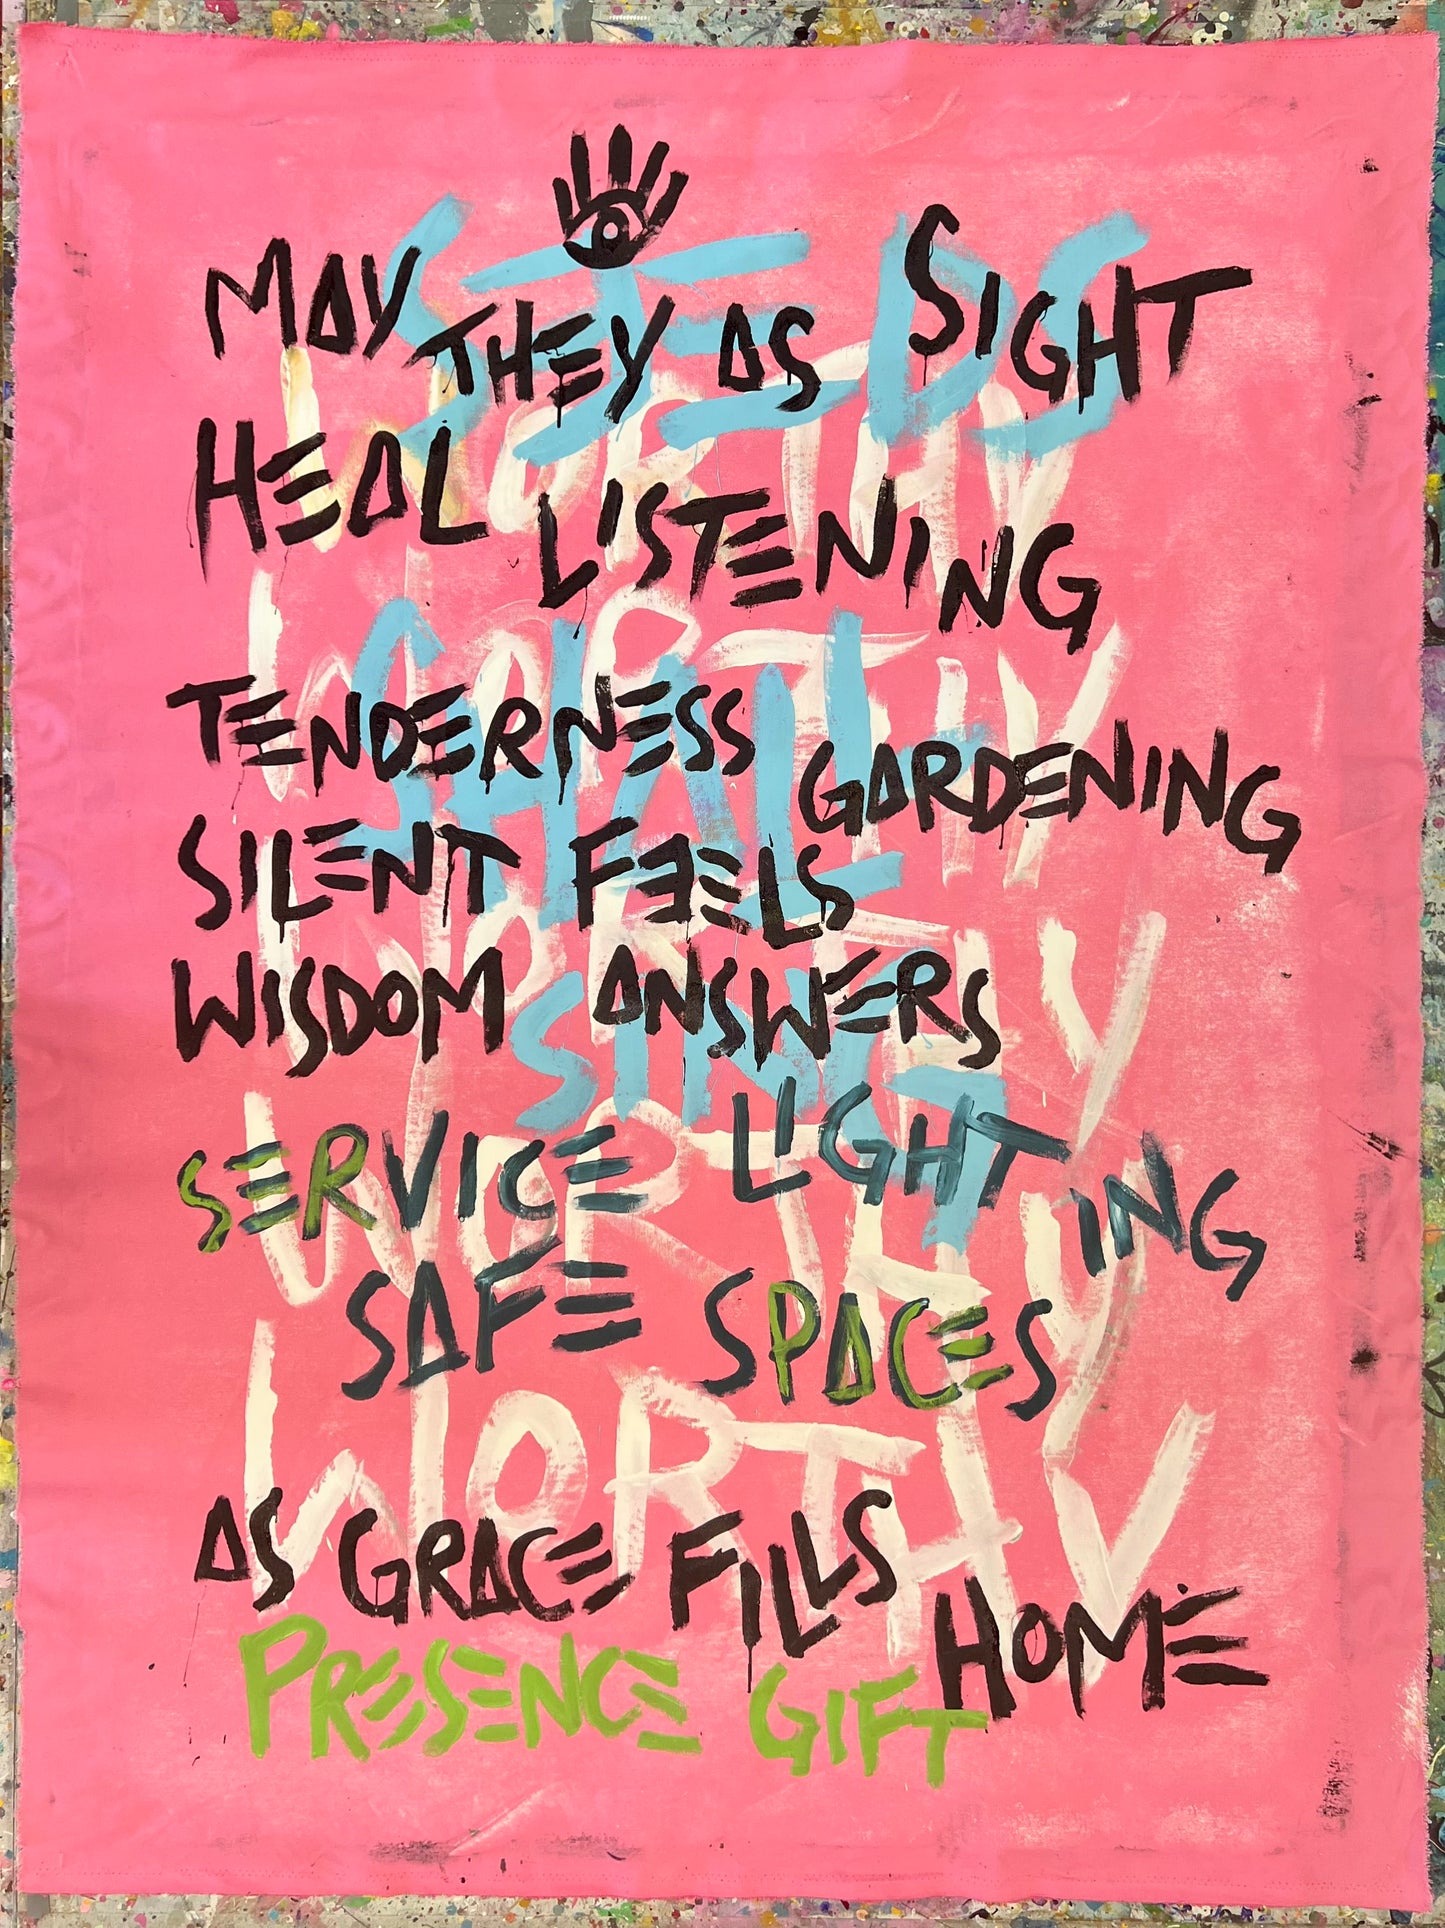 MAY THEY AS SIGHT
HEAL LISTENING
TENDERNESS GARDENING
SILENT FEELS
WISDOM ANSWERS
SERVICE LIGHTING
SAFE SPACES
AS GRACE FILLS HOME
PRESENCE GIFT
SEEDS
SHALL
SING
WORTHY
WORTHY
WORTHY
WORTHY
WORTHY